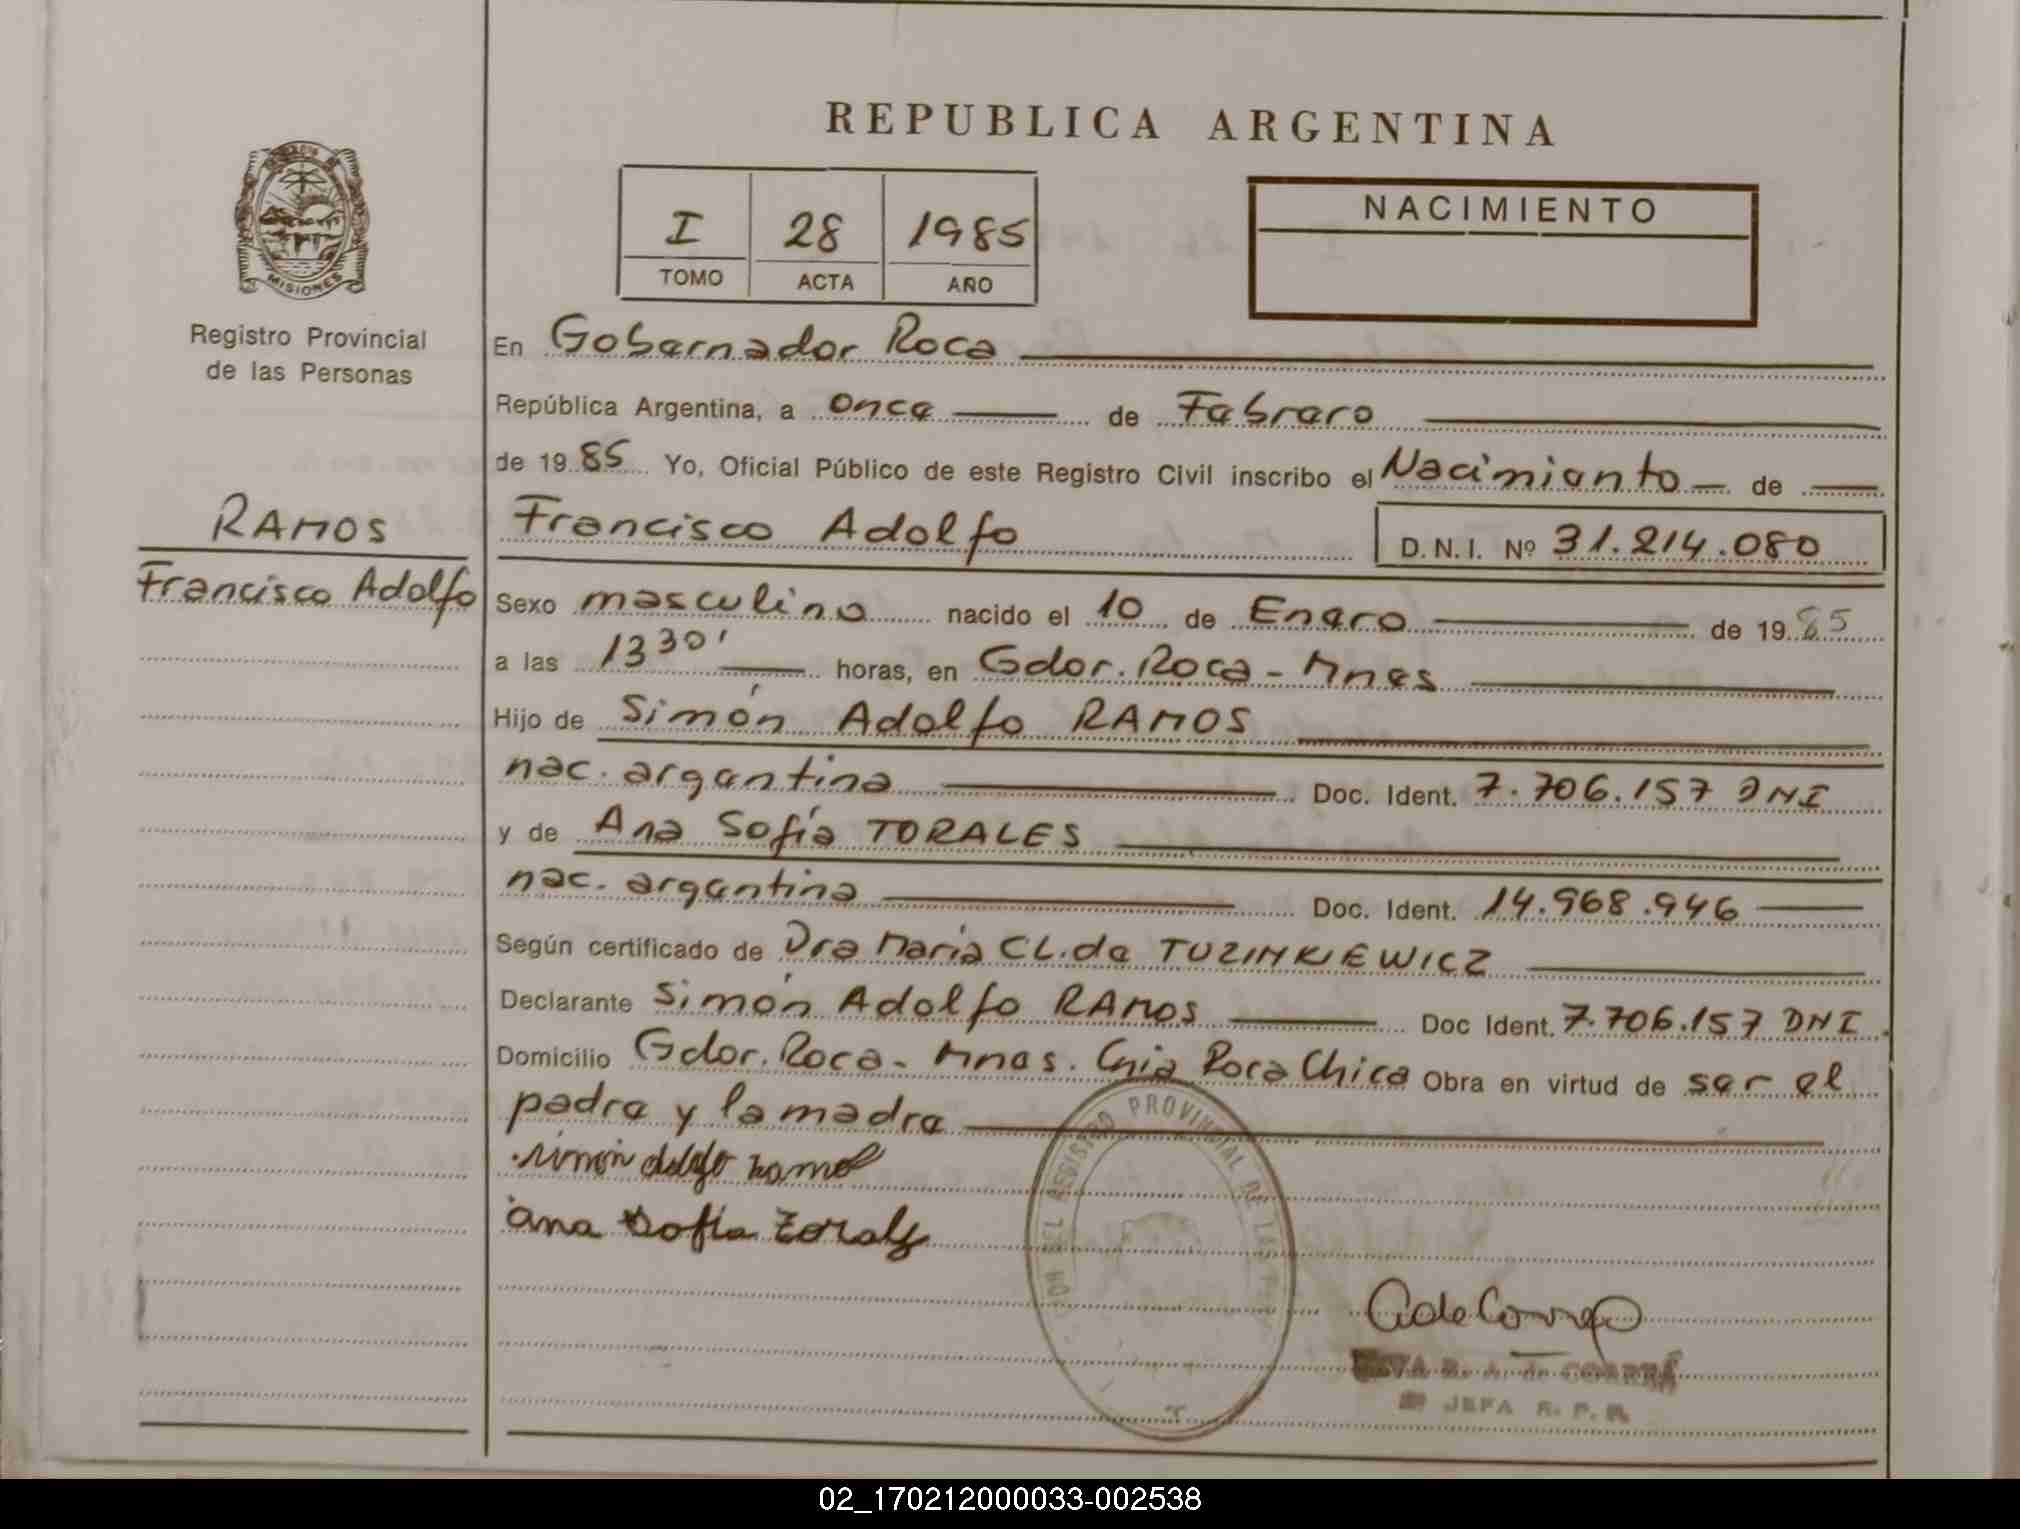 REPUBLICA ARGENTINA
I 28 1985
TOMO ACTA AÑO
NACIMIENTO
MISIONES
Registro Provincial
de las Personas
En Gobernador Roca
República Argentina, a once de Febrero
de 1985 Yo, Oficial Público de este Registro Civil inscribo el Nacimiento de
RAMOS
Francisco Adolfo
Francisco Adolfo D.N.I. Nº 31.214.080
Sexo masculino nacido el 10 de Enero de 1985
a las 13 30' horas, en Gdor. Roca - Mnes
Hijo de Simón Adolfo RAMOS
nac. argentina Doc. Ident. 7.706.157 DNI
y de Ana Sofía TORALES
nac. argentina Doc. Ident. 14.968.946
Según certificado de Dra María CL. de TUZINKIEWICZ
Declarante Simón Adolfo RAMOS Doc Ident. 7.706.157 DNI.
Domicilio Gdor. Roca - Mnes. Cnia Roca Chica Obra en virtud de ser el
padre y la madre
simón adolfo ramos
ana sofia torales
REGISTRO PROVINCIAL DE LAS
A. de CORREA
JEFA R. P. P.
02_170212000033-002538